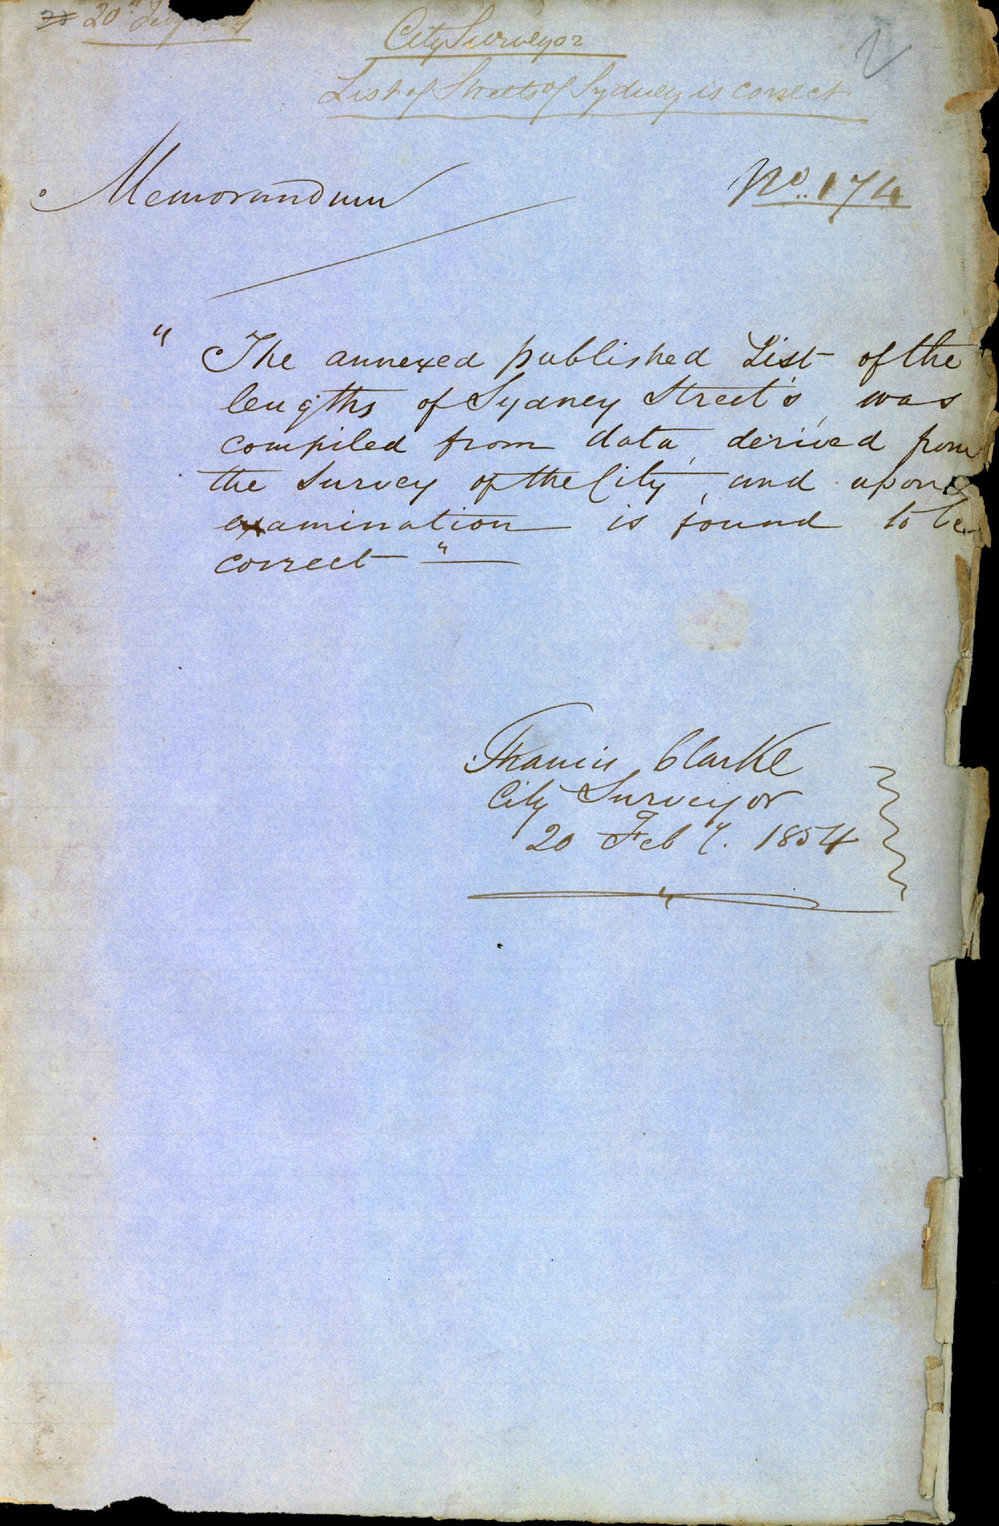 20th Feby
City Surveyor
List of Streets of Sydney is correct
Memorandum
No. 174
" The annexed published List of the
lengths of Sydney Street's, was
compiled from data, derived from
the Survey of the City, and upon
examination is found to be
correct "
Francis Clarke
City Surveyor
20 Feby. 1854